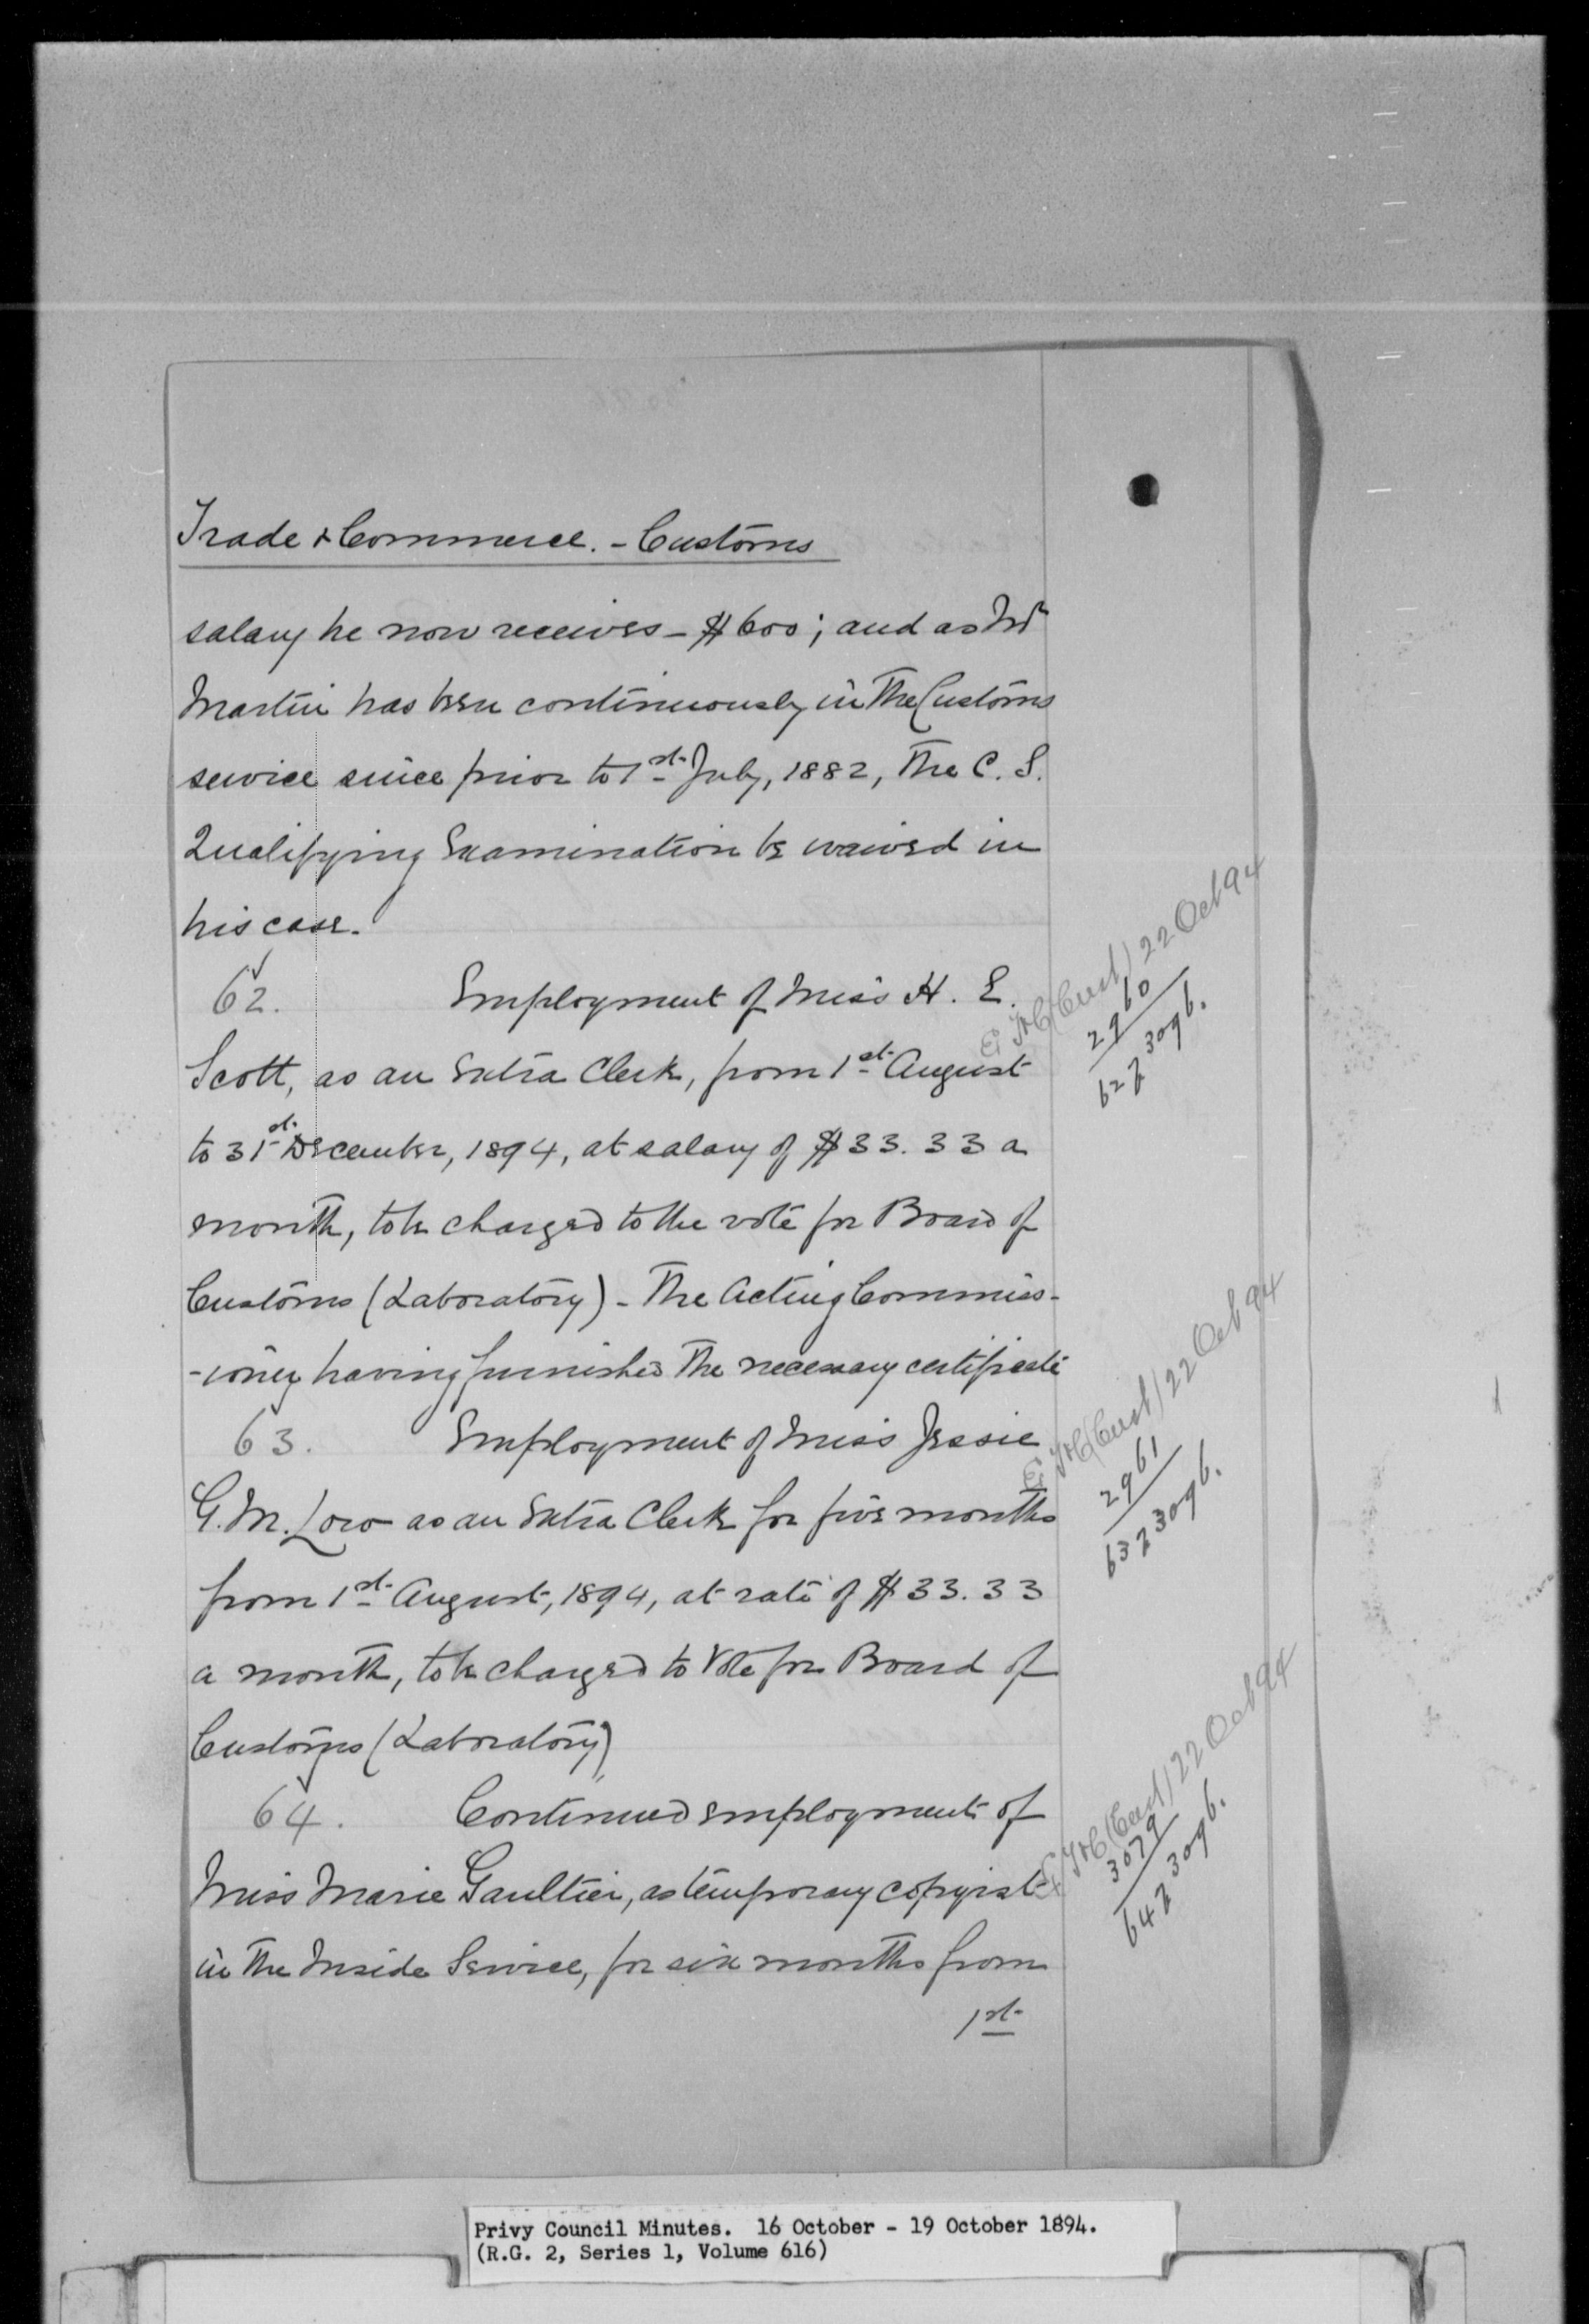 Trade & Commerce. - Customs
salary he now receives - $600; and as Mr
Martin has been continuously in the Customs
service since prior to 1st July, 1882, the C. S.
Qualifying Examination be waived in
his case.
62. Employment of Miss H. E.
Scott, as an Extra Clerk, from 1st August
to 31st December, 1894, at salary of $33.33 a
month, to be charged to the vote for Board of
Customs (Laboratory) - The Acting Commiss-
-ioner having furnished the necessary certificate
63. Employment of Miss Jessie
G. M. Low as an Extra Clerk for five months
from 1st August, 1894, at rate of $33.33
a month, to be charged to Vote for Board of
Customs (Laboratory)
64. Continued employment of
Miss Marie Gaultier, as temporary copyist
in the Inside Service, for six months from
1st
T&C (Cust) 22 Oct 94
2960
62 z 3096.
T&C (Cust) 22 Oct 94
2961
63 z 3096.
T&C (Cust) 22 Oct 94
3079
64 z 3096.
Privy Council Minutes. 16 October - 19 October 1894.
(R.G. 2, Series 1, Volume 616)